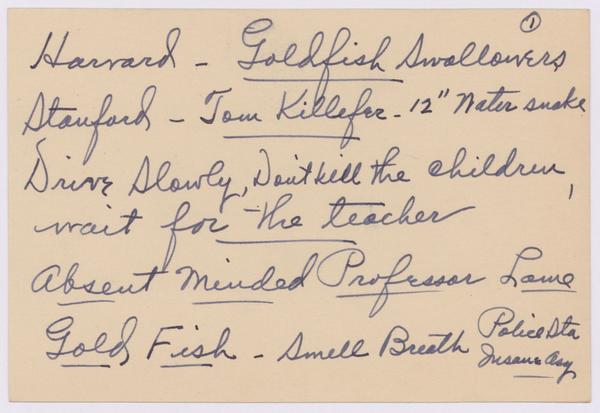 ①
Harvard - Goldfish Swallowers
Stanford - Tom Killefer - 12" Water snake
Drive Slowly, Don't kill the children,
wait for the teacher
Absent Minded Professor Lame
Gold Fish - Smell Breath Police Sta
Insane Asy